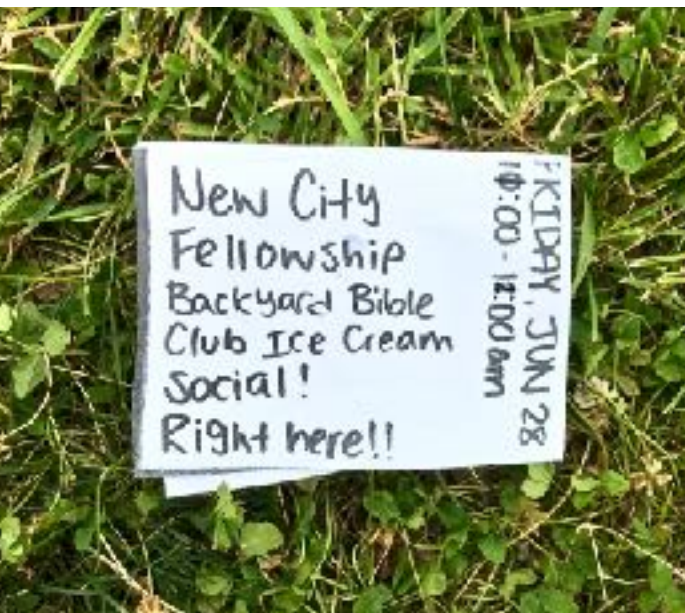 New City
Fellowship
Backyard Bible
Club Ice Cream
Social!
Right here!!
FRIDAY, JUN 28
10:00 - 12:00